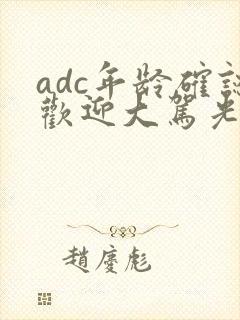 adc年龄確認
歡迎大駕光
趙慶彪